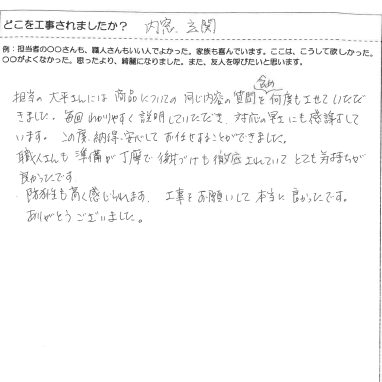 どこを工事されましたか? 内窓、玄関
例:担当者の○○さんも、職人さんもいい人でよかった。家族も喜んでいます。ここは、こうして欲しかった。
○○がよくなかった。思ったより、綺麗になりました。また、友人を呼びたいと思います。
含め
担当の大平さんには商品についての同じ内容の質問を何度もさせていただ
きました。毎回わかりやすく説明していただき、対応の早さにも感謝して
います。この度、納得、安心してお任せすることができました。
職人さんも準備が丁寧で後片づけも徹底されていてとても気持ちが
良かったです。
防犯性も高く感じられます。工事をお願いして本当に良かったです。
ありがとうございました。